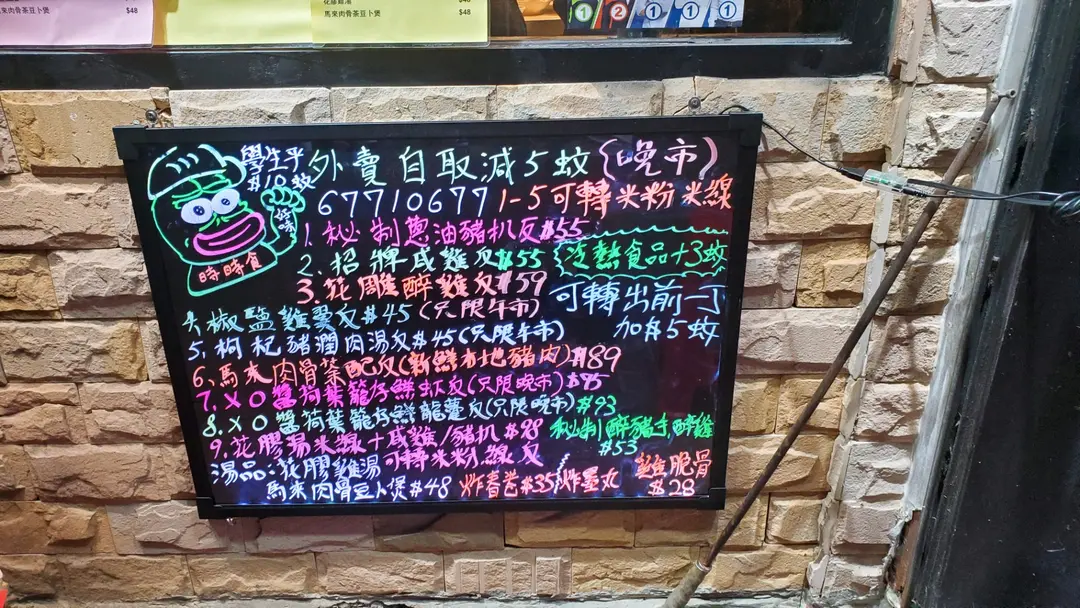 花膠雞湯
馬來肉骨茶豆卜煲 $48
$48
馬來肉骨茶豆卜煲 $48
學生平
#10蚊
外賣自取減5蚊(晚市)
67710677 1-5可轉米粉 米線
好味
時時食
1. 秘制蔥油豬扒反 $55
2. 招牌咸雞反 $55
冷熱食品+3蚊
3. 花雕醉雞反 $59
可轉出前一丁
加$5蚊
4. 椒鹽雞翼反 $45 (只限午市)
5. 枸杞豬潤肉湯反 $45 (只限午市)
6. 馬來肉骨茶配反(新鮮本地豬肉) $89
7. XO醬荷葉籠仔鮮蝦反(只限晚市) $85
8. XO醬荷葉籠仔鮮龍躉反(只限晚市) $93
9. 花膠湯米線+咸雞/豬扒 $98
秘制醉豬手,醉雞
$53
湯品:花膠雞湯 可轉米粉線反
馬來肉骨豆卜煲 $48
炸春卷 $35/炸墨丸
雞脆骨
$28